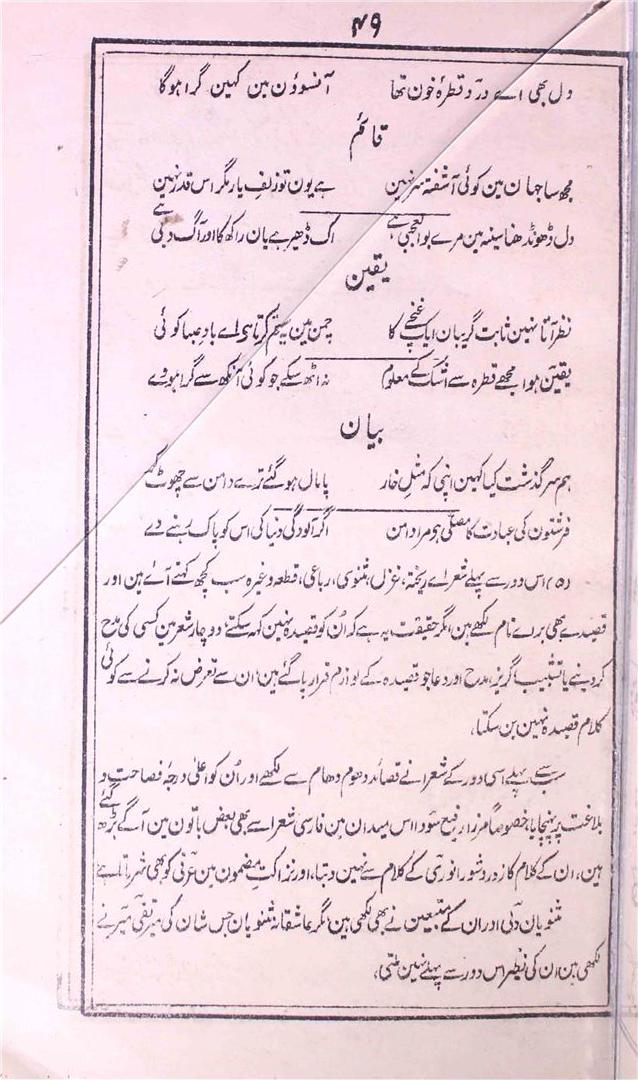 ۴۹
دل بھی اے درد قطرۂ خون تھا آنسوؤن مین کہین گرا ہوگا
قائم
مجھ سا جہان مین کوئی آشفتہ سر نہین ہے یون تو زلفِ یار مگر اس قدر نہین
دل ڈھونڈھنا سینہ مین مرے بوالعجبی ہے اک ڈھیر ہے یان راکھ کا اور آگ دبی ہے
یقین
نظر آتا نہین ثابت گریبان ایک غنچے کا چمن مین یہ ستم کرتا ہی اے بادِ صبا کوئی
یقین ہوا مجھے قطرہ سے اشک کے معلوم نہ اٹھ سکے جو کوئی آنکھ سے گرا ہووے
بیان
ہم سرگذشت کیا کہین اپنی کہ مثلِ خار پامال ہو گئے ترے دامن سے چھوٹ کے
فرشتون کی عبادت کا مصلّٰی ہو مرا دامن اگر آلودگی دنیا کی اس کو پاک رہنے دے
(۵) اس دور سے پہلے شعراے ریختہ، غزل، مثنوی، رباعی، قطعہ وغیرہ سب کچھ کہتے آئے ہین اور
قصیدے بھی براے نام لکھے ہین، مگر حقیقت یہ ہے کہ اُن کو قصیدہ نہین کہہ سکتے، دوچار شعر مین کسی کی مدح
کر دینے یا تشبیب، گریز، مدح اور دعا جو قصیدہ کے لوازم قرار پا گئے ہین، ان سے تعرض نہ کرنے سے کوئی
کلام قصیدہ نہین بن سکتا،
سب سے پہلے اسی دور کے شعرا نے قصائد دھوم دھام سے لکھے اور اُن کو اعلیٰ درجۂ فصاحت و
بلاغت پر پہنچایا، خصوصاً مرزا رفیع سودا اس میدان مین فارسی شعرا سے بھی بعض باتون مین آگے بڑھ گئے
ہین، ان کے کلام کا زور و شور انوری کے کلام سے نہین دبتا، اور نزاکتِ مضمون مین عرفی کو بھی شرماتا ہے
مثنویان ولی اور ان کے متبعین نے بھی لکھی ہین، مگر عاشقانہ مثنویان جس شان کی میر تقی میر نے
لکھی ہین ان کی نظیر اس دور سے پہلے نہین ملتی،